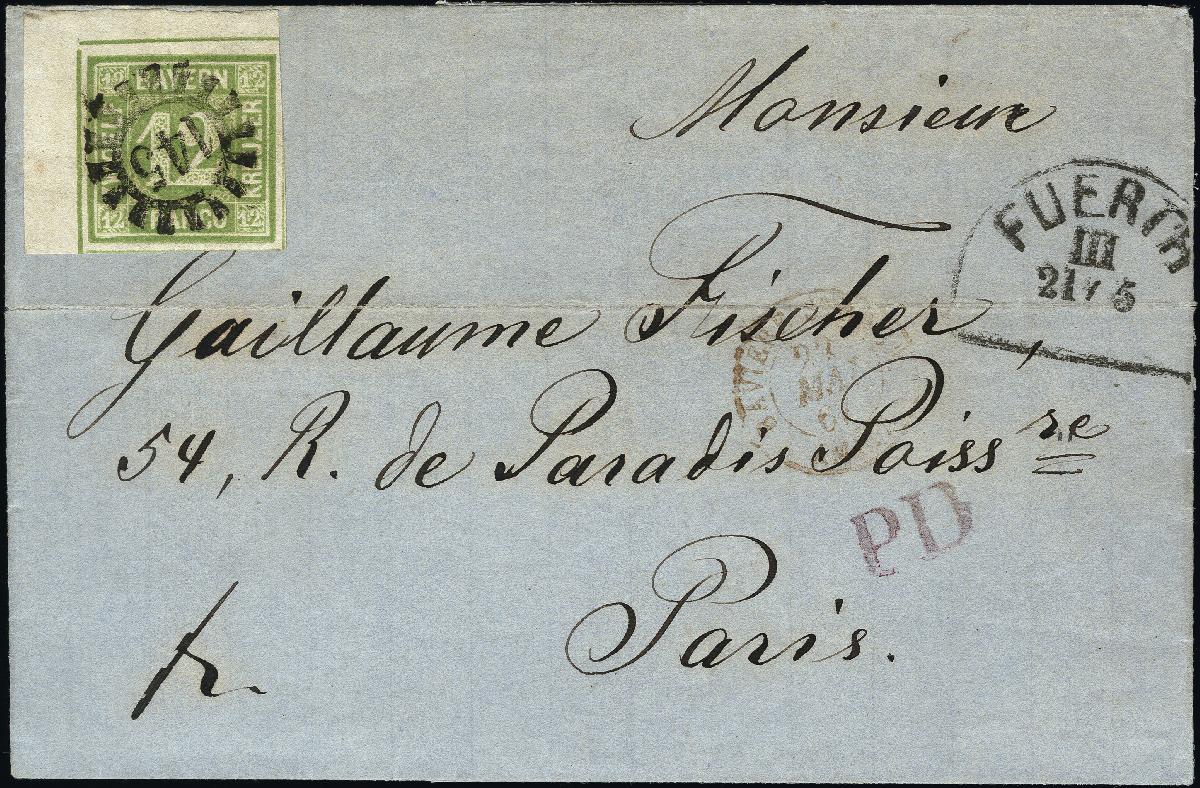 12 BAYERN 12
ZWOELF 12 KREUZER
12 FRANCO 12
145
Monsieur
FUERTH
III
21 / 5
Guillaume Fischer,
54, R. de Paradis Poissre
Paris.
MAI
PD
fr.